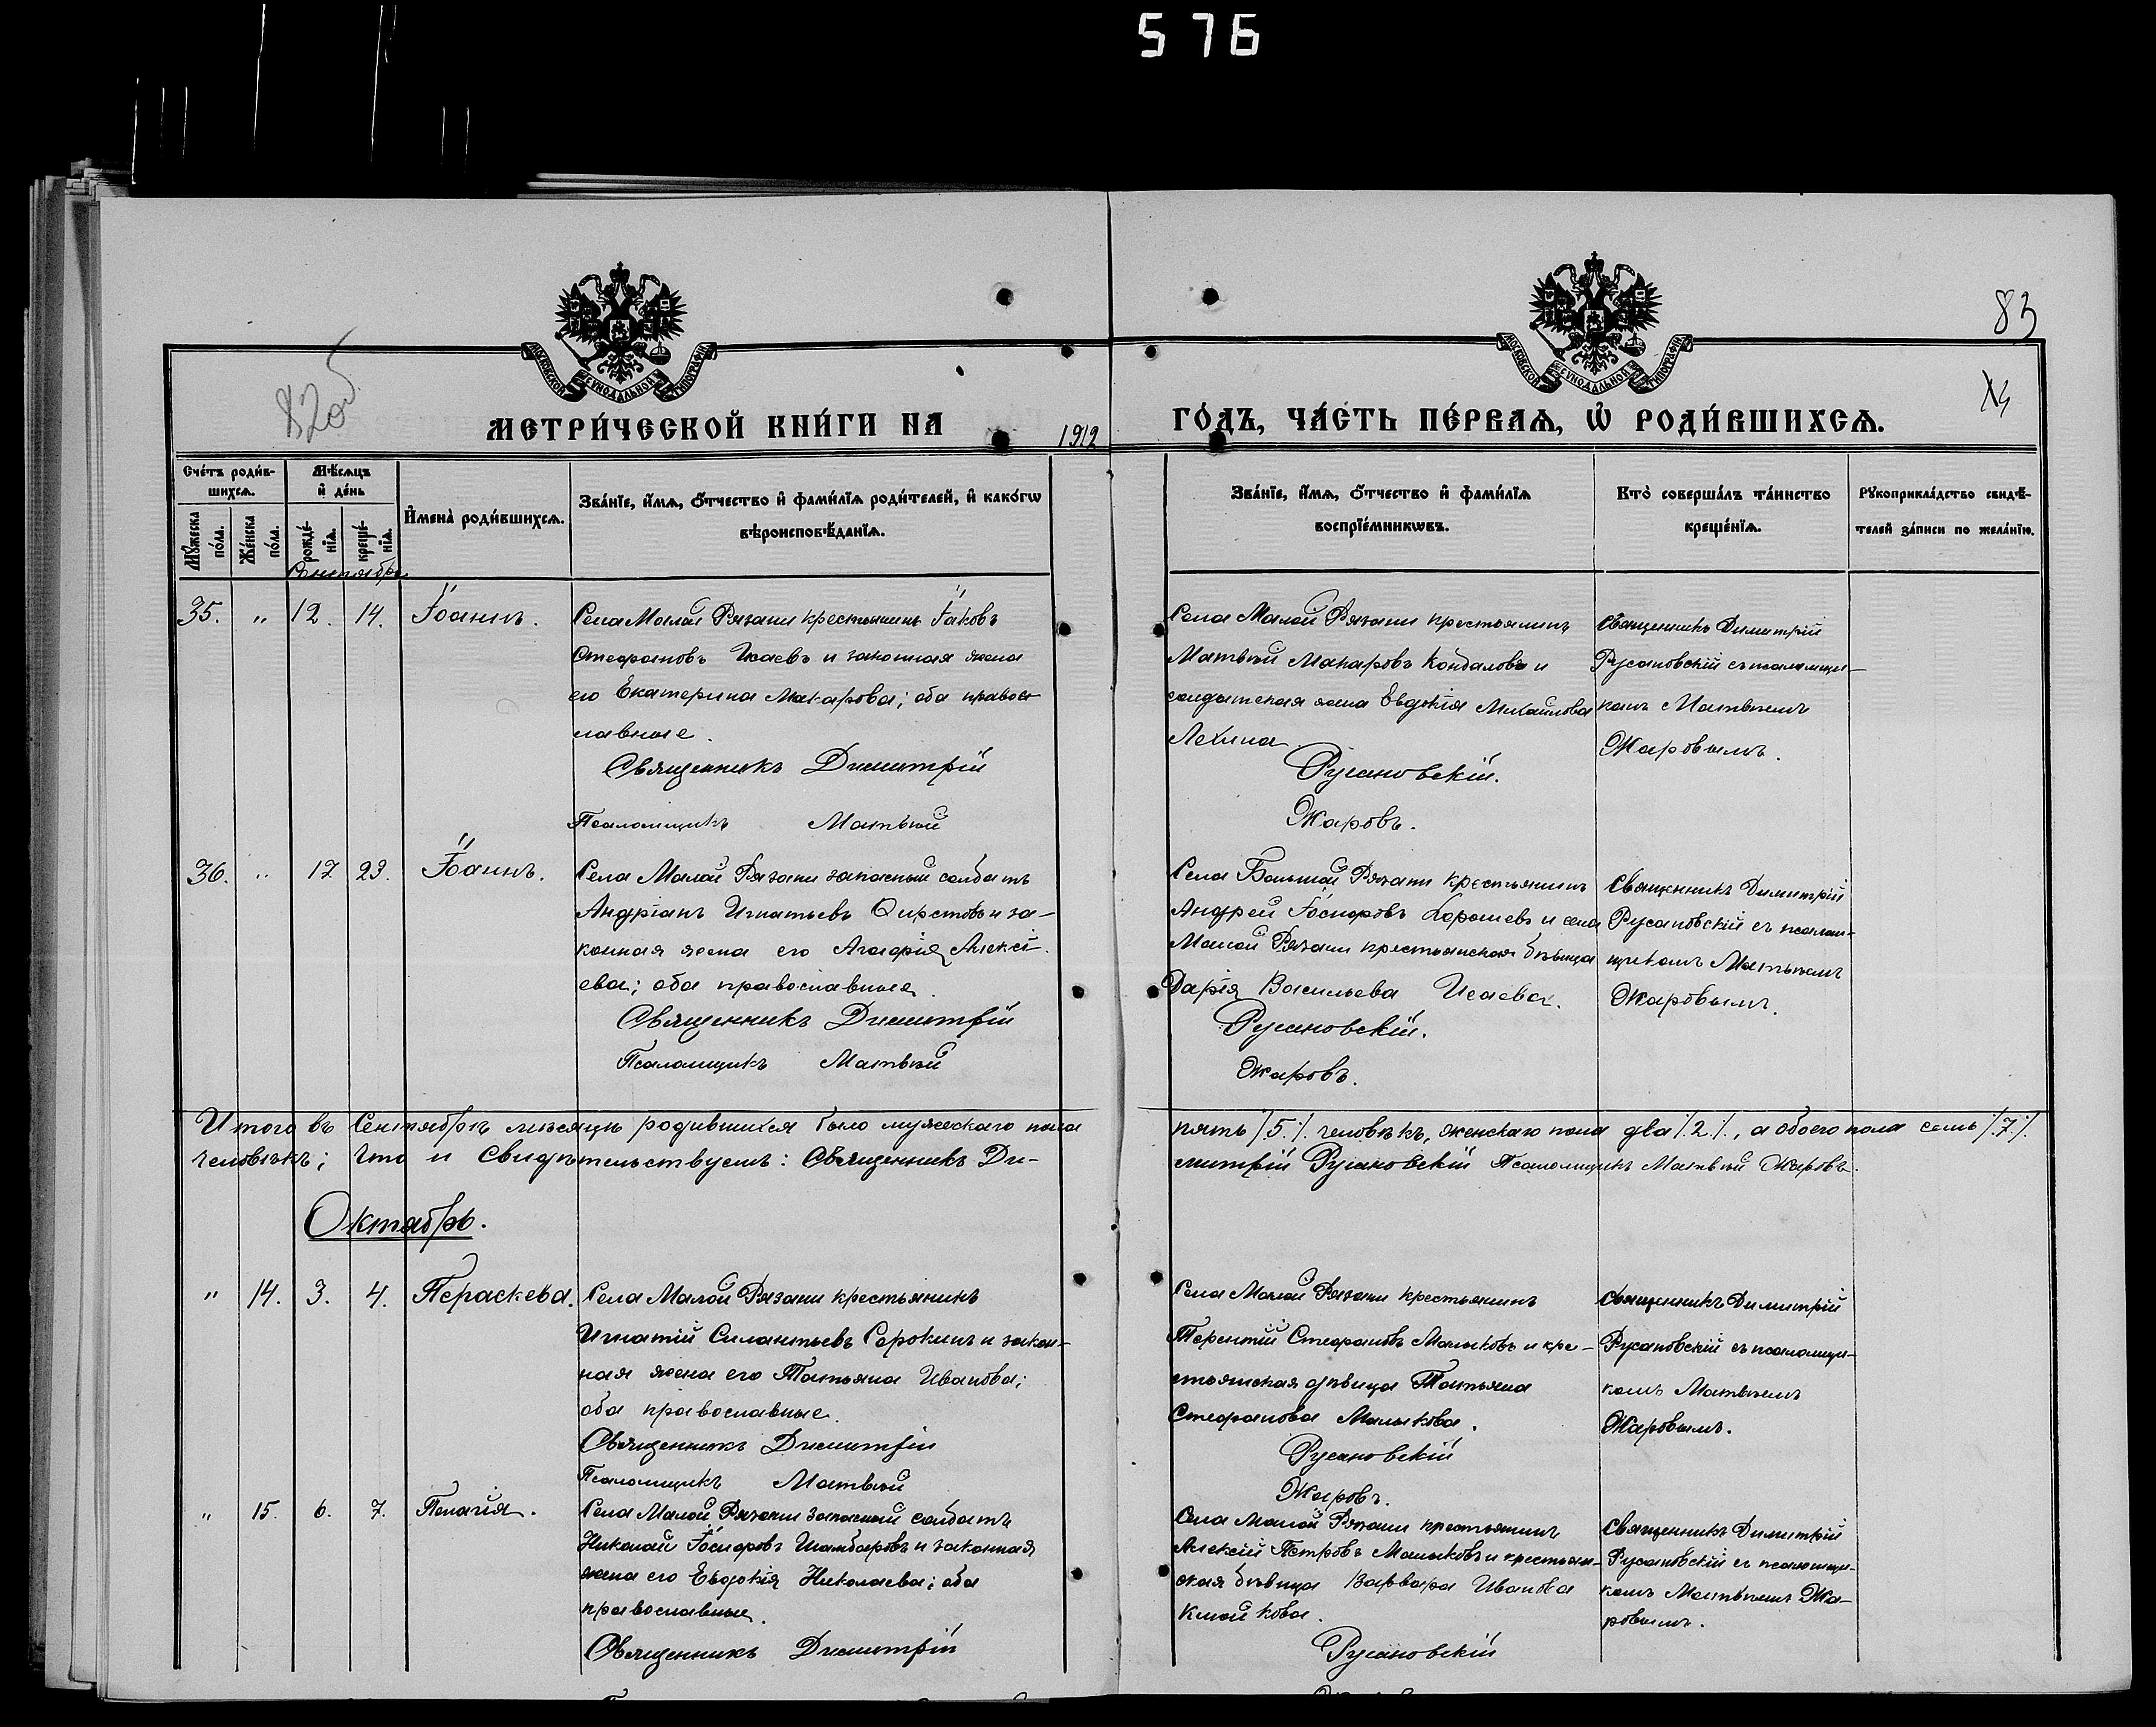 576
83
82об
МОСКОВСКОЙ СУНОДАЛЬНОЙ ТИПОГРАФІИ
МОСКОВСКОЙ СУНОДАЛЬНОЙ ТИПОГРАФІИ
МЕТРИ́ЧЕСКОЙ КНИ́ГИ НА 1912 ГО́ДЪ, ЧА́СТЬ ПЕ́РВАѦ, Ѡ РОДИ́ВШИХСѦ.
Сче́тъ роди́в-
шихсѧ.
Мѣ́сѧцъ
и де́нь
Мꙋ́жеска по́ла.
Же́нска по́ла.
рожде́-нїѧ.
креще́-нїѧ.
Имена̀ роди́вшихсѧ.
Зва́нїе, и́мѧ, о́тчество и фами́лїѧ роди́телей, и како́гѡ
вѣроисповѣ́данїѧ.
Зва́нїе, и́мѧ, о́тчество и фами́лїѧ
воспрїе́мникѡвъ.
Кто̀ соверша́лъ та́инство
креще́нїѧ.
Рꙋкоприкла́дство свидѣ́-
телей за́писи по жела́нїю.
Сентябрь
35. " 12. 14. Іоаннъ.
Села Малой Рязани крестьянинъ Іаковъ
Стефановъ Исаевъ и законная жена
его Екатерина Макарова; оба право-
славные.
Священникъ Димитрій
Псаломщикъ Матвѣй
Села Малой Рязани крестьянинъ
Матвѣй Макаровъ Кондаловъ и
солдатская жена Евдокія Михаилова
Лехина
Русановскій.
Жаровъ.
Священникъ Димитрій
Русановскій съ псаломщи-
комъ Матвѣемъ
Жаровымъ.
36. " 17 23. Іоаннъ.
Села Малой Рязани запасный солдатъ
Андріанъ Игнатьевъ Фирстовъ и за-
конная жена его Агафія Алексі-
ева; оба православные.
Священникъ Димитрій
Псаломщикъ Матвѣй
Села Большой Рязани крестьянинъ
Андрей Іосифовъ Хорошевъ и села
Малой Рязани крестьянская дѣвица
Дарія Васильева Исаева.
Русановскій.
Жаровъ.
Священникъ Димитрій
Русановскій съ псалом-
щикомъ Матвѣемъ
Жаровымъ.
Итого въ Сентябрѣ мѣсяцѣ родившихся было мужескаго пола пять /5./. человѣкъ, женскаго пола два /.2./., а обоего пола семь /.7./.
человѣкъ; Что и Свидѣтельствуемъ: Священникъ Ди-митрій Русановскій Псаломщикъ Матвѣй Жаровъ.
Октябрь.
" 14. 3. 4. Параскева.
Села Малой Рязани крестьянинъ
Игнатій Силантьевъ Сорокинъ и закон-
ная жена его Татьяна Иванова;
оба православные.
Священникъ Димитрій
Псаломщикъ Матвѣй
Села Малой Рязани крестьянинъ
Терентій Стефановъ Малыковъ и кре-
стьянская дѣвица Татьяна
Стефанова Малыкова.
Русановскій
Жаровъ.
Священникъ Димитрій
Русановскій съ псаломщи-
комъ Матвѣемъ
Жаровымъ.
" 15. 6. 7. Пелагія.
Села Малой Рязани запасный солдатъ
Николай Іосифовъ Шамбаровъ и законная
жена его Евдокія Николаева; оба
православные.
Священникъ Димитрій
Села Малой Рязани крестьянинъ
Алексій Петровъ Малыковъ и крестьян-
ская дѣвица Варвара Иванова
Русановскій
Священникъ Димитрій
Русановскій съ псаломщи-
комъ Матвѣемъ Жа-
ровымъ.